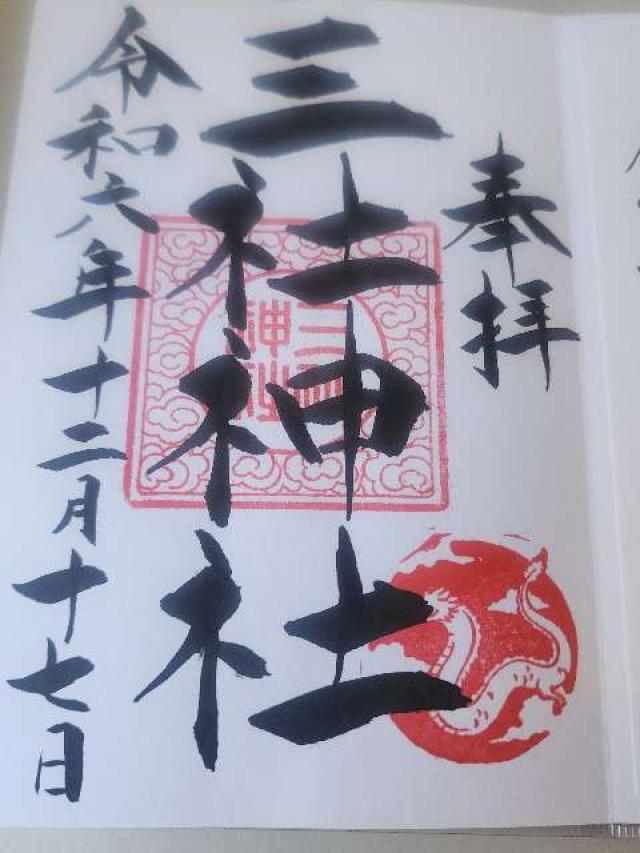 奉拝
三社神社
令和六年十二月十七日